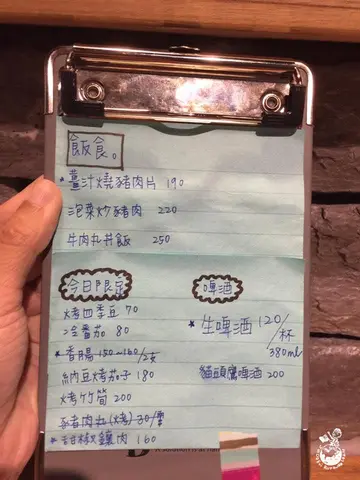 飯食。
*薑汁燒豬肉片 190
泡菜炒豬肉 220
牛肉丸丼飯 250
今日限定
烤四季豆 70
冷番茄 80
*香腸 150~160/2支
納豆烤茄子 180
烤竹筍 200
豬肉丸(烤) 30/串
*甜椒鑲肉 160
啤酒
*生啤酒 120/杯
380ml
貓頭鷹啤酒 200